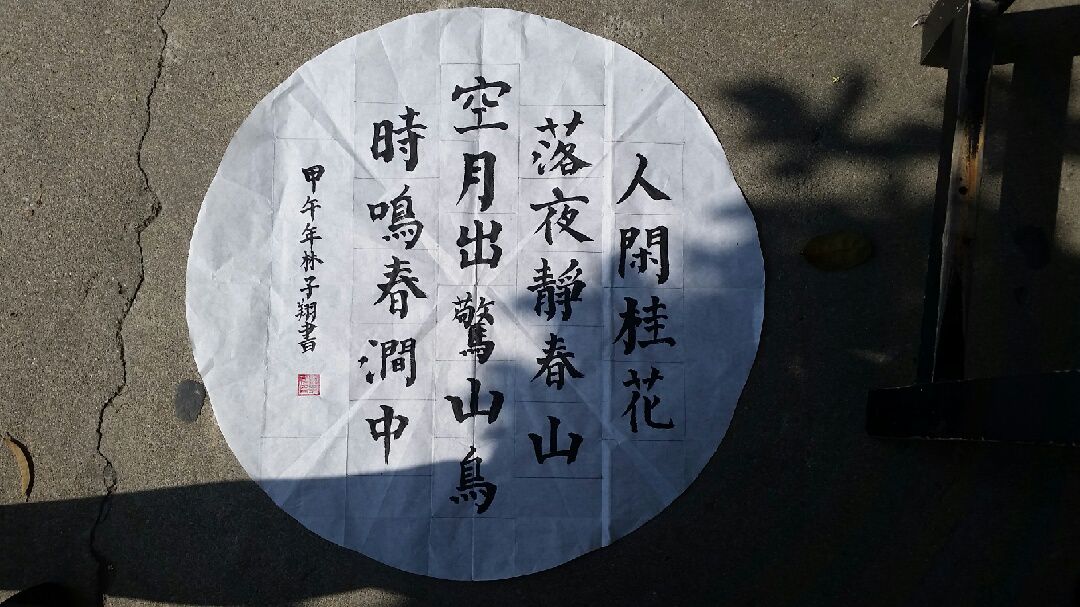 人閑桂花
落夜靜春山
空月出驚山鳥
時鳴春澗中
甲午年林子翔書